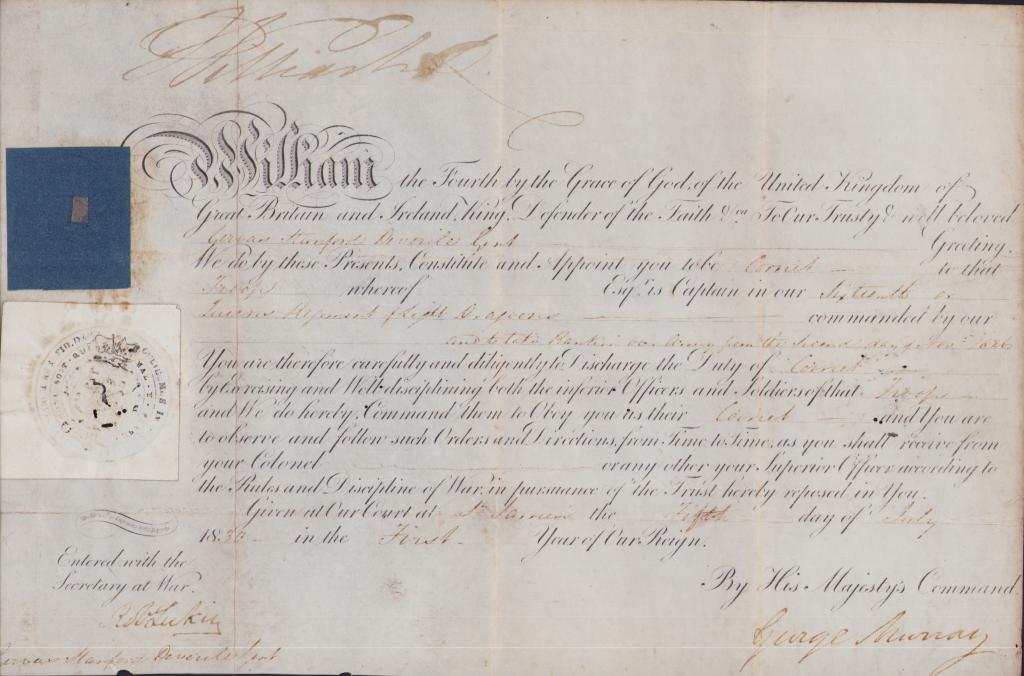 William R
William the Fourth by the Grace of God, of the United Kingdom of
Great Britain and Ireland, King, Defender of the Faith &ca To Our Trusty & well beloved
Gervas Stanford Deverile Gent Greeting.
We do by these Presents, Constitute and Appoint you to be Cornet to that
Troop whereof Esqr. is Captain in our Sixteenth or
Queens Regiment of Light Dragoons commanded by our
and to take Rank in our Army from the Second day of Novr. 1826
You are therefore carefully and diligently to Discharge the Duty of Cornet
by Exercising and Well-disciplining both the inferior Officers and Soldiers of that Troop
and We do hereby Command them to Obey you as their Cornet and You are
to observe and follow such Orders and Directions, from Time to Time, as you shall receive from
your Colonel or any other your Superior Officer according to
the Rules and Discipline of War, in pursuance of the Trust hereby reposed in You.
Given at Our Court at St. James's the Fifth day of July
1830 in the First Year of Our Reign.
By His Majesty's Command.
Entered with the
Secretary at War.
George Murray
Gervas Stanford Deverile Gent